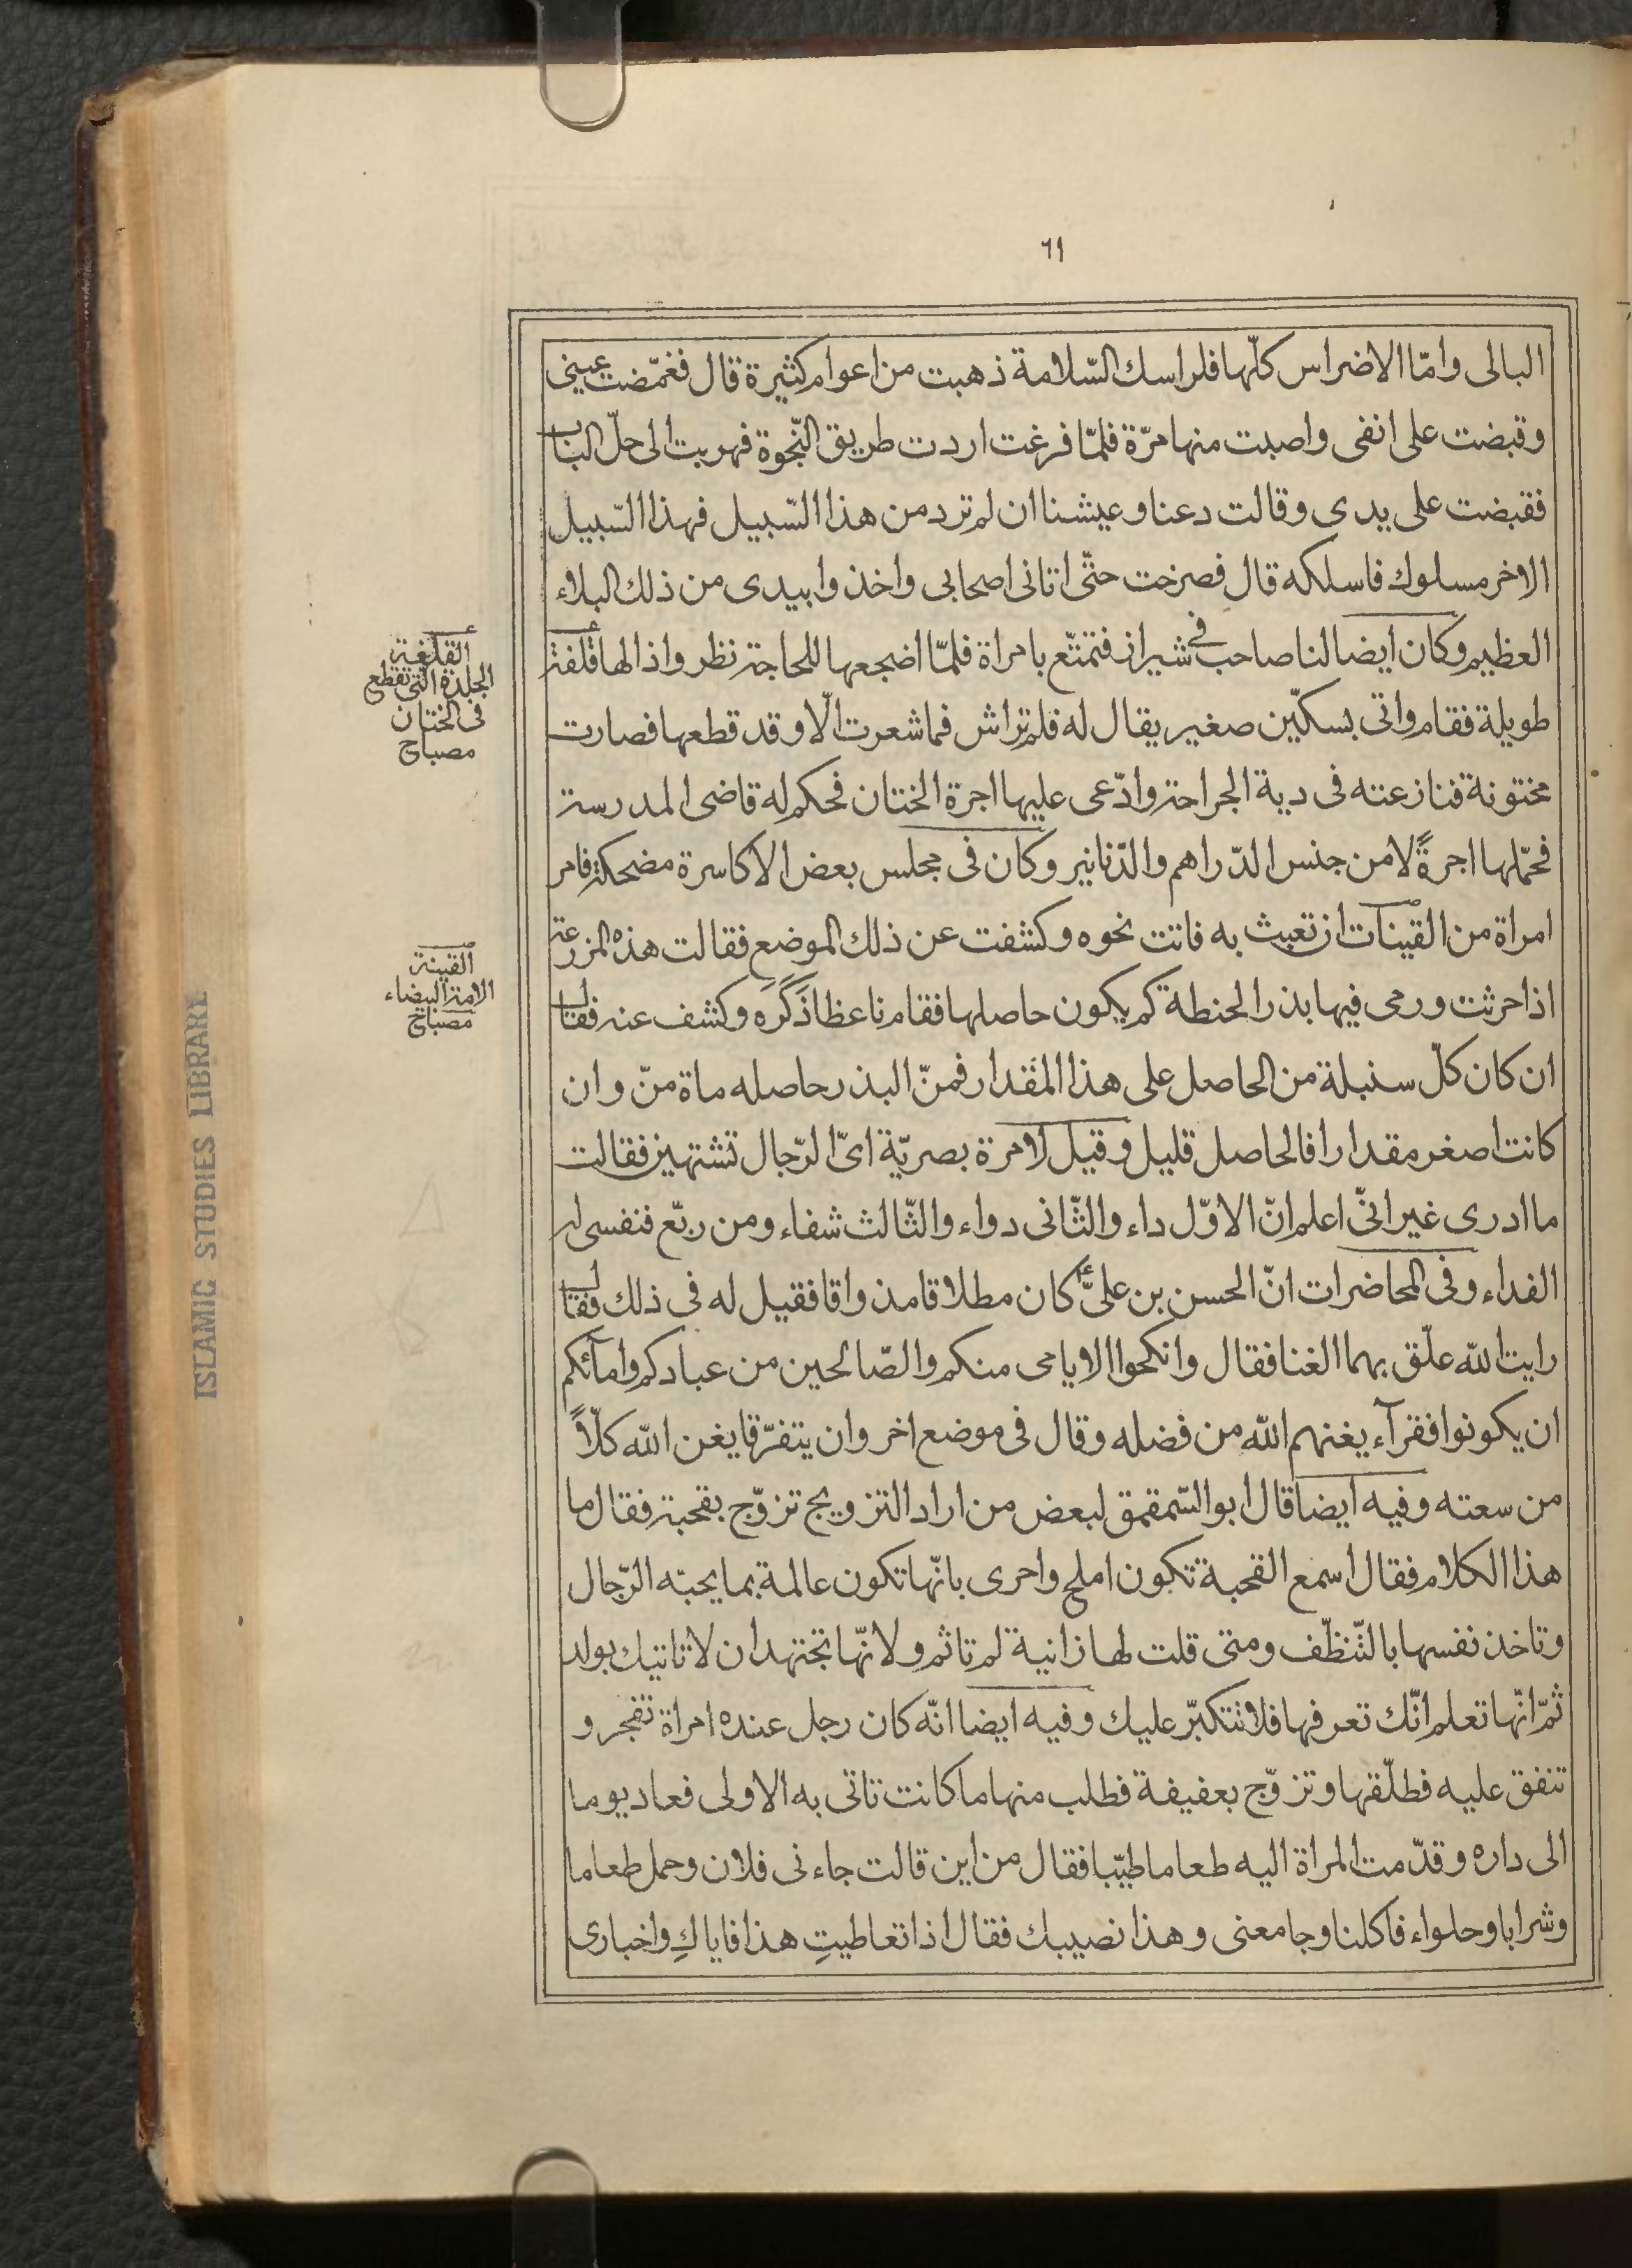 ٦١
البالى وامّا الاضراس كلّها فلراسك السّلامة ذهبت من اعوام كثيرة قال فغمّضت عينى
وقبضت على انفى واصبت منها مرّة فلمّا فرغت اردت طريق النّجوة فهربت الى حلّ الباب
فقبضت على يدى وقالت دعنا وعيشنا ان لم ترد من هذا السّبيل فهذا السّبيل
الاخر مسلوك فاسلكه قال فصرخت حتّى اتانى اصحابى واخذوا بيدى من ذلك البلاء
العظيم وكان ايضا لنا صاحب فى شيراز فتمتّع بامراة فلمّا اضجعها للحاجة نظر واذا لها قلفة
طويلة فقام واتى بسكّين صغير يقال له قلم تراش فما شعرت الّا وقد قطعها فصارت
مختونة فنازعته فى دية الجراحة وادّعى عليها اجرة الختان فحكم له قاضى المدرسة
فحمّلها اجرةً لا من جنس الدّراهم والدّنانير وكان فى مجلس بعض الاكاسرة مضحكة فامر
امراة من القينات ان تعبث به فاتت نحوه وكشفت عن ذلك الموضع فقالت هذه المزرعة
اذا حرثت ورمى فيها بذر الحنطة كم يكون حاصلها فقام ناعظا ذَكَرَه وكشف عنه فقال
ان كان كلّ سنبلة من الحاصل على هذا المقدار فمنّ البذر حاصله ماة منّ وان
كانت اصغر مقدارا فالحاصل قليل وقيل لامرة بصريّة اىّ الرّجال تشتهين فقالت
ما ادرى غير انّى اعلم انّ الاوّل داء والثّانى دواء والثّالث شفاء ومن ربّع فنفسى له
الفداء وفى المحاضرات انّ الحسن بن علىّ ع كان مطلاقا مذواقا فقيل له فى ذلك فقال
رايت الله علّق بهما الغنا فقال وانكحوا الايامى منكم والصّالحين من عبادكم وامآئكم
ان يكونوا فقرآء يغنهم الله من فضله وقال فى موضع اخر وان يتفرّقا يغن الله كلّاً
من سعته وفيه ايضا قال ابو السّمقمق لبعض من اراد التزويج تزوّج بقحبة فقال ما
هذا الكلام فقال اسمع القحبة تكون املح واحرى بانّها تكون عالمة بما يحبّه الرّجال
وتاخذ نفسها بالتّنظّف ومتى قلت لها زانية لم تاثم ولانّها تجتهد ان لا تاتيك بولد
ثمّ انّها تعلم انّك تعرفها فلا تتكبّر عليك وفيه ايضا انّه كان رجل عنده امراة تفجر و
تنفق عليه فطلّقها وتزوّج بعفيفة فطلب منها ما كانت تاتى به الاولى فعاد يوما
الى داره وقدّمت المراة اليه طعاما طيّبا فقال من اين قالت جاءنى فلان وحمل طعاما
وشرابا وحلواء فاكلنا وجامعنى وهذا نصيبك فقال اذا تعاطيتِ هذا فاياكِ واخبارى
القلفة
الجلدة الّتى تقطع
فى الختان
مصباح
القينة
الامة البيضاء
مصباح
ISLAMIC STUDIES LIBRARY